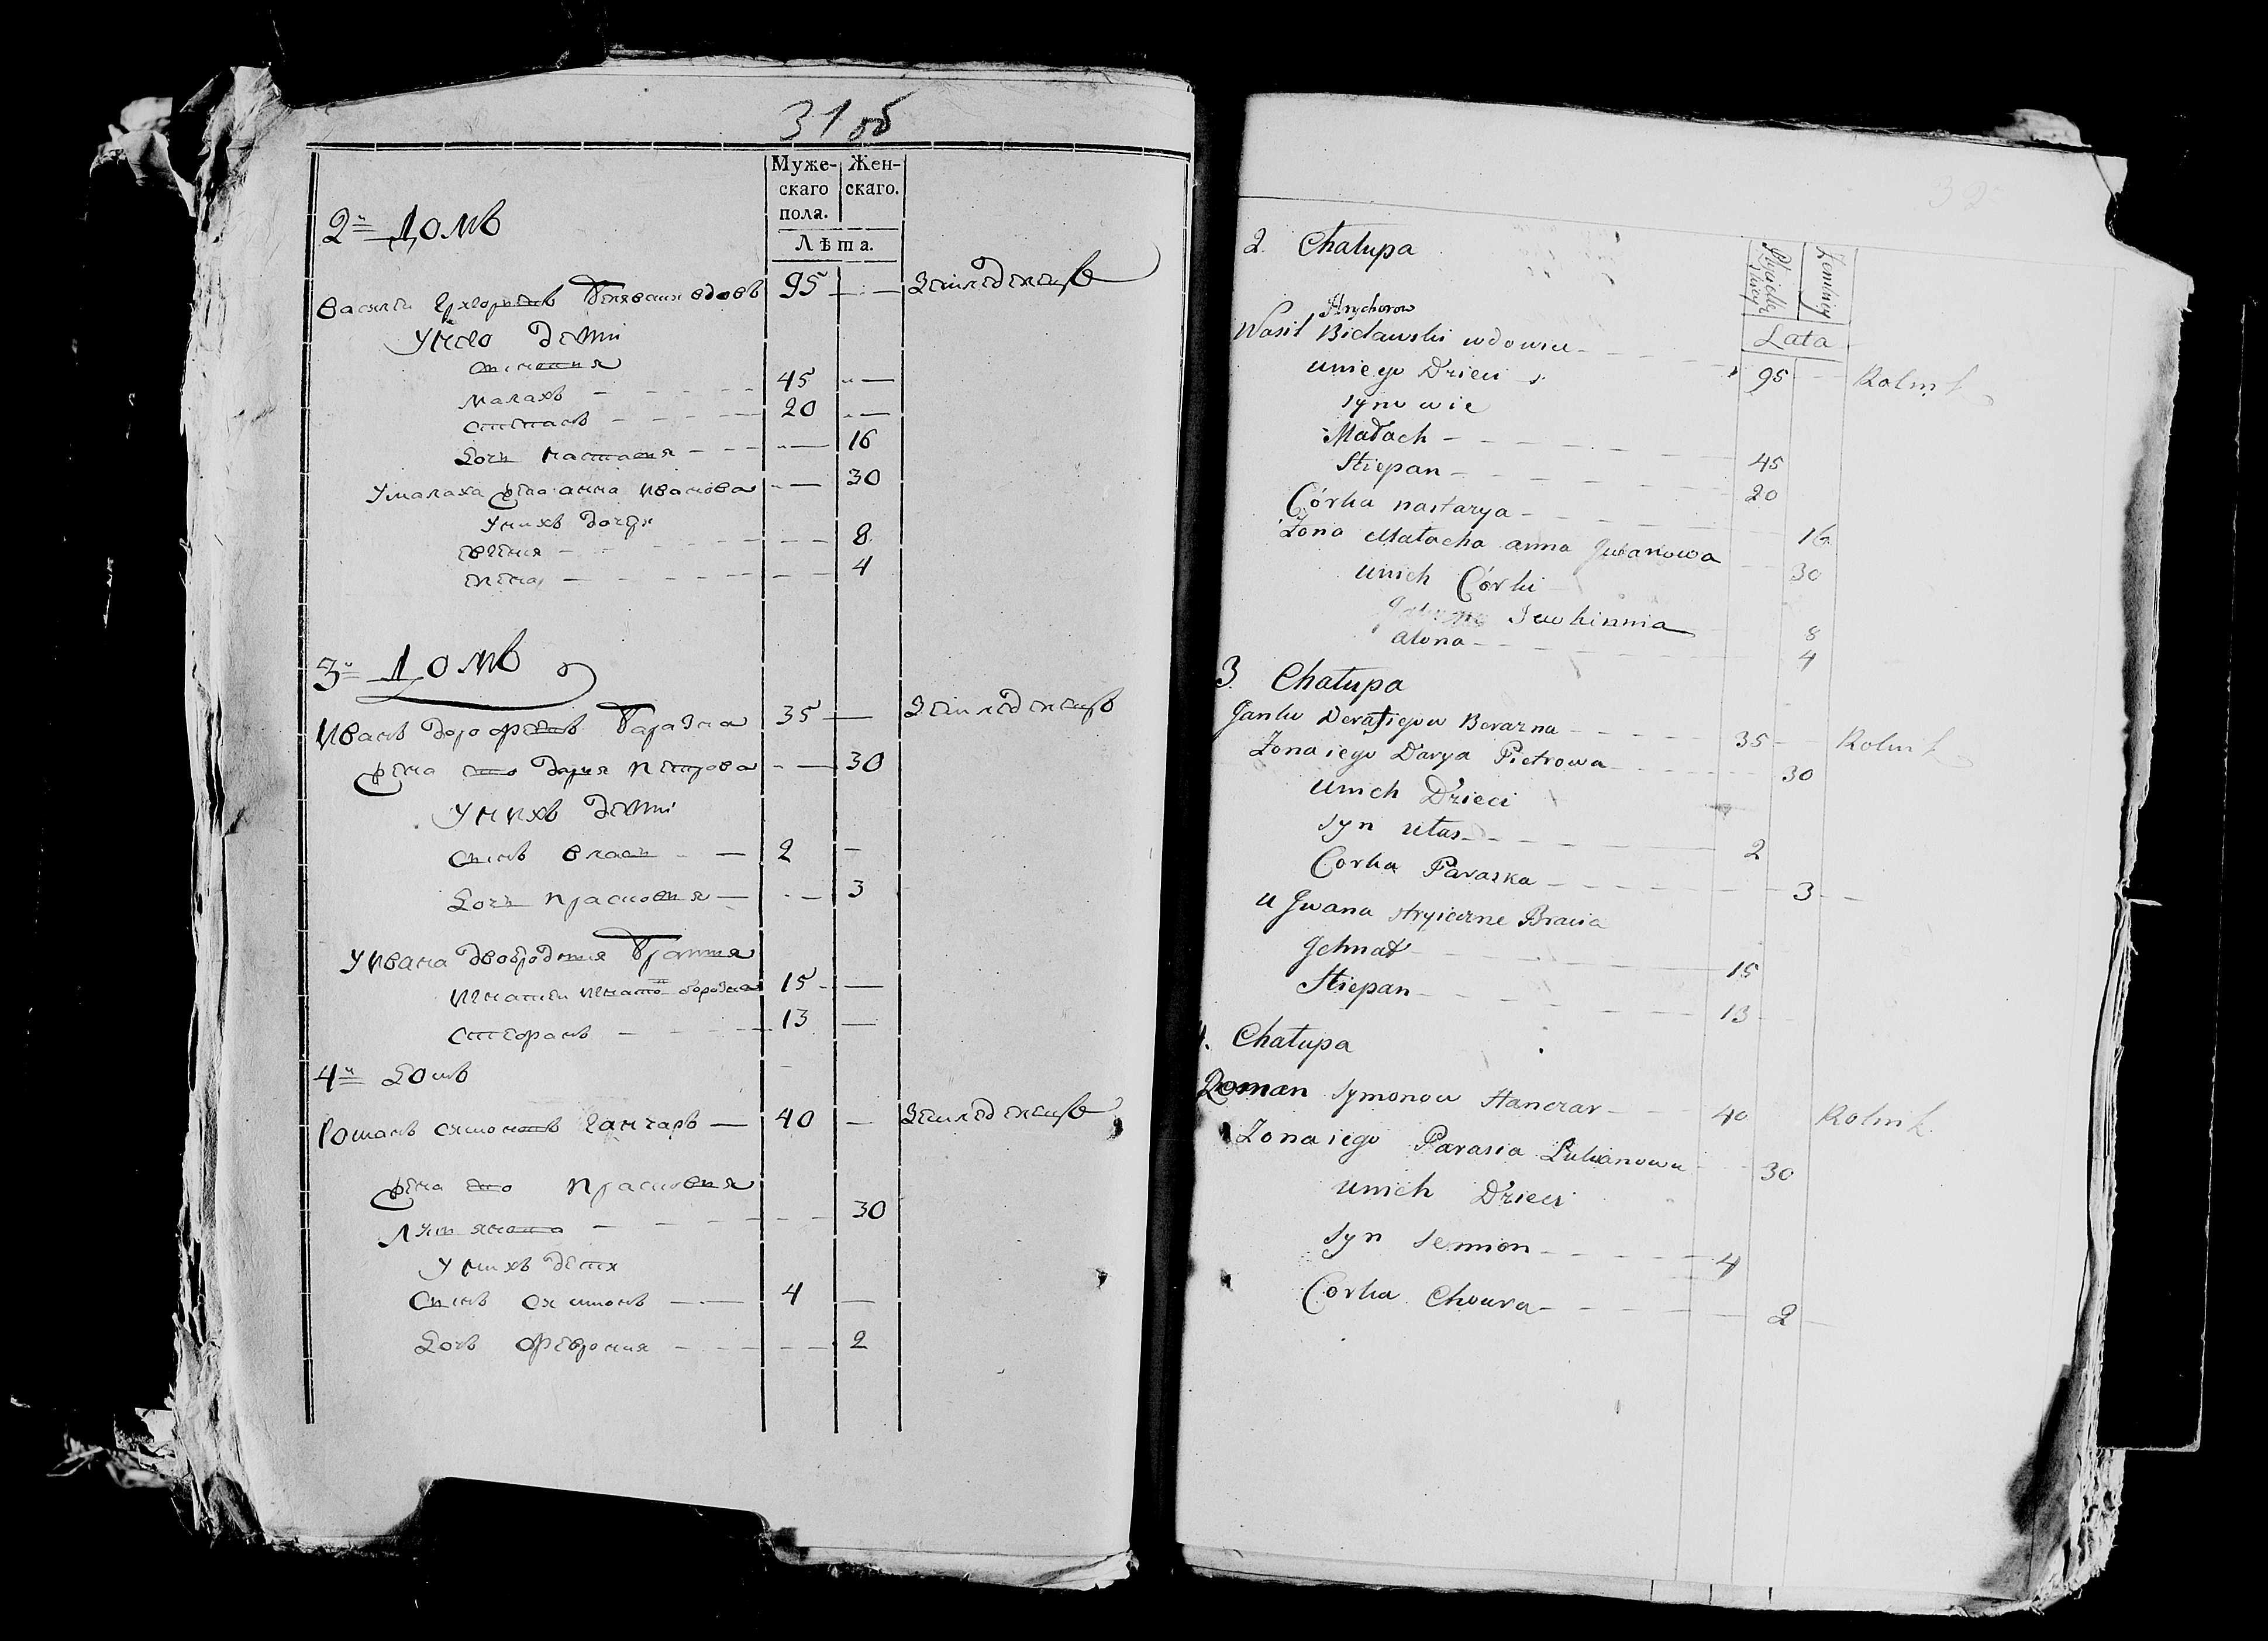 31 об
Муже-
скаго
пола.
Жен-
скаго.
Лѣта.
2й Домъ
Василей Григорьевъ Белявски вдовъ 95 — Земледелецъ
У него дети
Сыновия
Малахъ - - - 45 —
Степанъ - - - 20 —
Дочь Настасия - - - — 16
У Малаха жена Анна Иванова — 30
У нихъ дочери
Евгения - - - 8
Елена - - - 4
3й Домъ
Иванъ Дорофеевъ Баразна 35 — Земледелецъ
Жена его Дария Петрова — 30
У нихъ дети
Сынъ Власъ — 2 —
Дочь Прасковия — 3
У Ивана двоюродные братья
Игнатей Игнатов Боразна 15 —
Стефанъ - - - 13 —
4й Домъ
Романъ Сямоновъ Ганчаръ — 40 — Земледелецъ
Жена его Прасковия
Лукянова - - - 30
У нихъ дети
Сынъ Сямонъ — 4 —
Дочь Феврония - - - 2
32
2. Chałupa
Żenskiey
Lata
Hrychorow
Wasil Bielawski wdowiec - - - 95 — Rolnik
u niego Dzieci
synowie
Małach - - - 45
Stiepan - - - 20
Córka nastazya - - - 16
Żona Małacha anna Jwanowa - - 30
u nich Córki
Jewhinnia 8
alona - - - 4
3 Chałupa
Janko Dorafiejow Borazna - - - 35 — Rolnik
Żona iego Darya Pietrowa - - - 30
u nich Dzieci
syn ułas - - - 2
Corka Paraska - - - 3
u Jwana stryieczne Bracia
Jehnat - - - 15
Stiepan - - - 13
4. Chałupa
Roman Symonow Hanczar - - 40 Rolnik
Żona iego Parasia Łukianowa - - 30
u nich Dzieci
syn semion - - - 4
Corka Chowra - - - 2